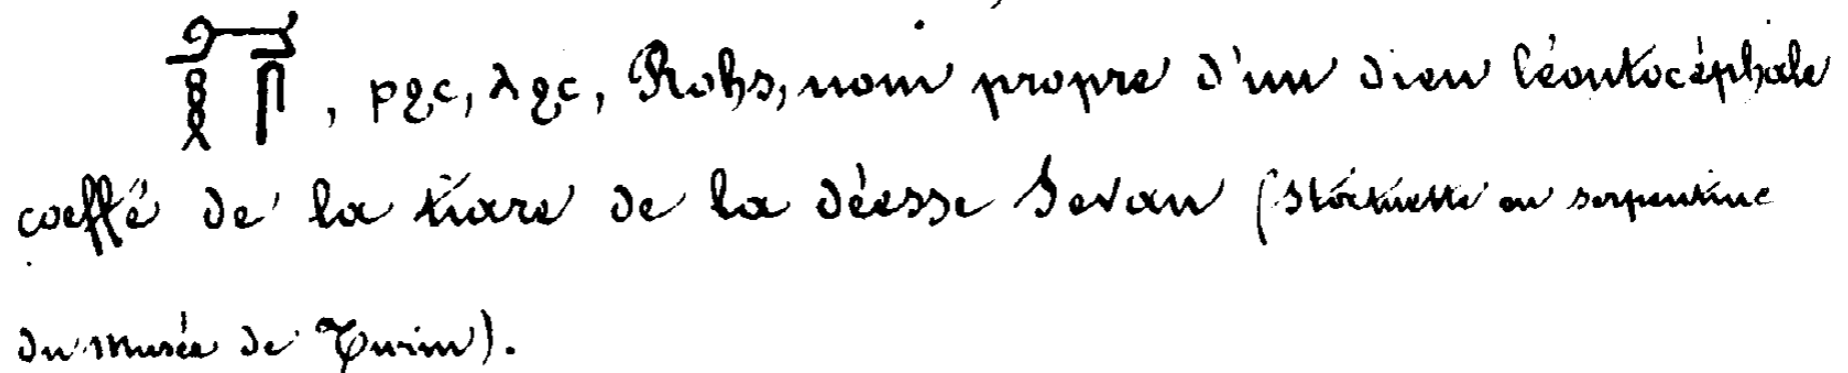 , ⲣϩⲥ, ⲗϩⲥ, Rohs, nom propre d'un dieu léontocéphale
coeffé de la tiare de la déesse Sevan (Statuette en serpentine
du musée de Turin).